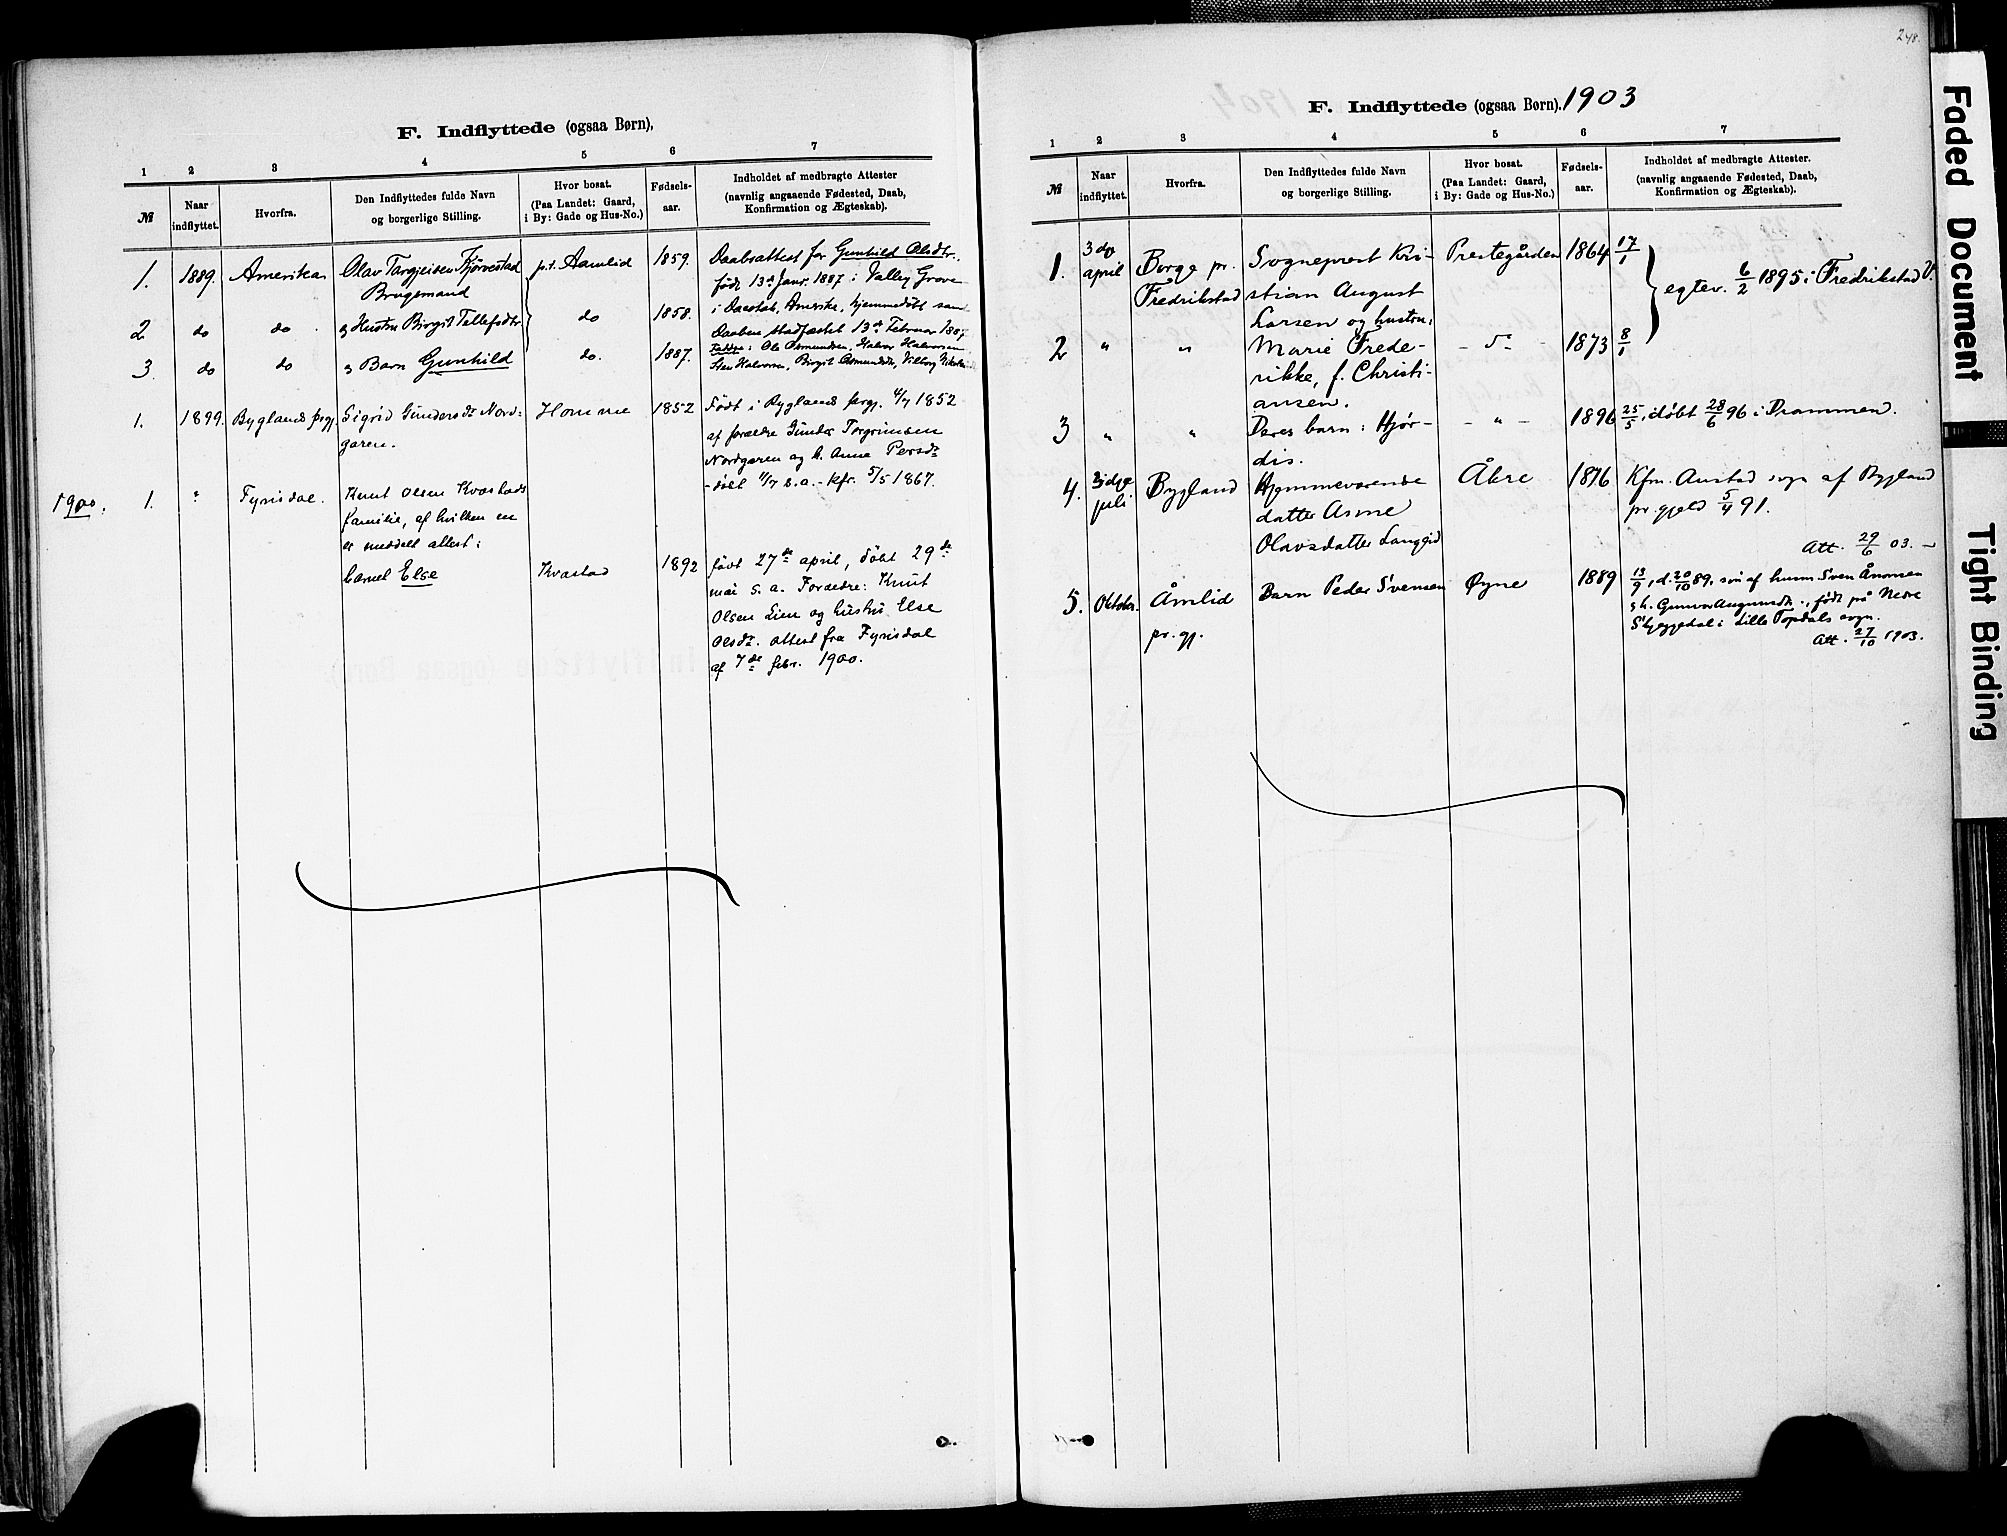 F. Indflyttede (ogsaa Børn),
1 2 3 4 5 6 7
№
Naar indflyttet.
Hvorfra.
Den Indflyttedes fulde Navn og borgerlige Stilling.
Hvor bosat. (Paa Landet: Gaard, i By: Gade og Hus-No.)
Fødsels-aar.
Indholdet af medbragte Attester (navnlig angaaende Fødested, Daab, Konfirmation og Ægteskab).
1. 1889. Amerika Olav Targjeisen p.t. Aamlid 1859. Daabsattest for Gunhild Olsdtr.
Brugsmand født 13de Janr. 1887 i Valley Grove
2 do do. og Hustru Birgit Tellefsdtr do 1858. Amerika, hjemmedøbt
Daaben stadfæstet 13de Februar 1887
3. do do og Barn Gunhild do. 1887. Faddre: Ole Osmundsen, Halvor Halvorsen
Halvorsen, Birgit
1. 1899. Byglands prgj. Sigrid Gundersdr Nord- Homme 1852 Født i Byglands prgj. 1852
garen. af foraeldre Gunder Torgrimsen
Nordgaren og h. Anne Persdr
døbt s.a. - kfr. 5/5 1867.
1900. 1. " Fyrisdal. Knut Olsen Kvastads
familie, af hvilken en
er meddelt attest:
barnet Else Kvastad 1892 født 27de april, døbt 29de
mai s. a. Foraeldre: Knut
Olsen Lien og hustru Else
Olsdr. attest fra Fyrisdal
af 7de febr. 1900.
248.
F. Indflyttede (ogsaa Børn). 1903
1 2 3 4 5 6 7
№
Naar indflyttet.
Hvorfra.
Den Indflyttedes fulde Navn og borgerlige Stilling.
Hvor bosat. (Paa Landet: Gaard, i By: Gade og Hus-No.)
Fødsels-aar.
Indholdet af medbragte Attester. (navnlig angaaende Fødested, Daab, Konfirmation og Ægteskab).
1. april Borge pr. Sogneprest Kri- Prestegården 1864 17/1
Fredrikstad stian August egtev. 6/2 1895 i Fredrikstad
Larsen og hustru:
2 " " Marie Frede- 1873 8/1
rikke, f. Christi-
ansen.
3 " " Deres barn: Hjør- - " - 1896 25/5, døbt 28/6 96 i Drammen.
dis.
4. juli Bygland Hjemmeværende Åkre 1876 Kfm. Austad sogn af Bygland
datter Asme pr.gjeld 5/4 91.
Olavsdatter Langeid Att. 29/6 03. -
5. Oktober. Åmlid Barn Peder Svensen Øyne 1889 13/9, d. 20/10 89, søn af husm. Sven Ånonsen
pr. gj. g h. Gunvor , født på Nedre
Skjeggedal i Lille Topdals sogn.
Att. 27/10 1903.
Faded Document
Tight Binding